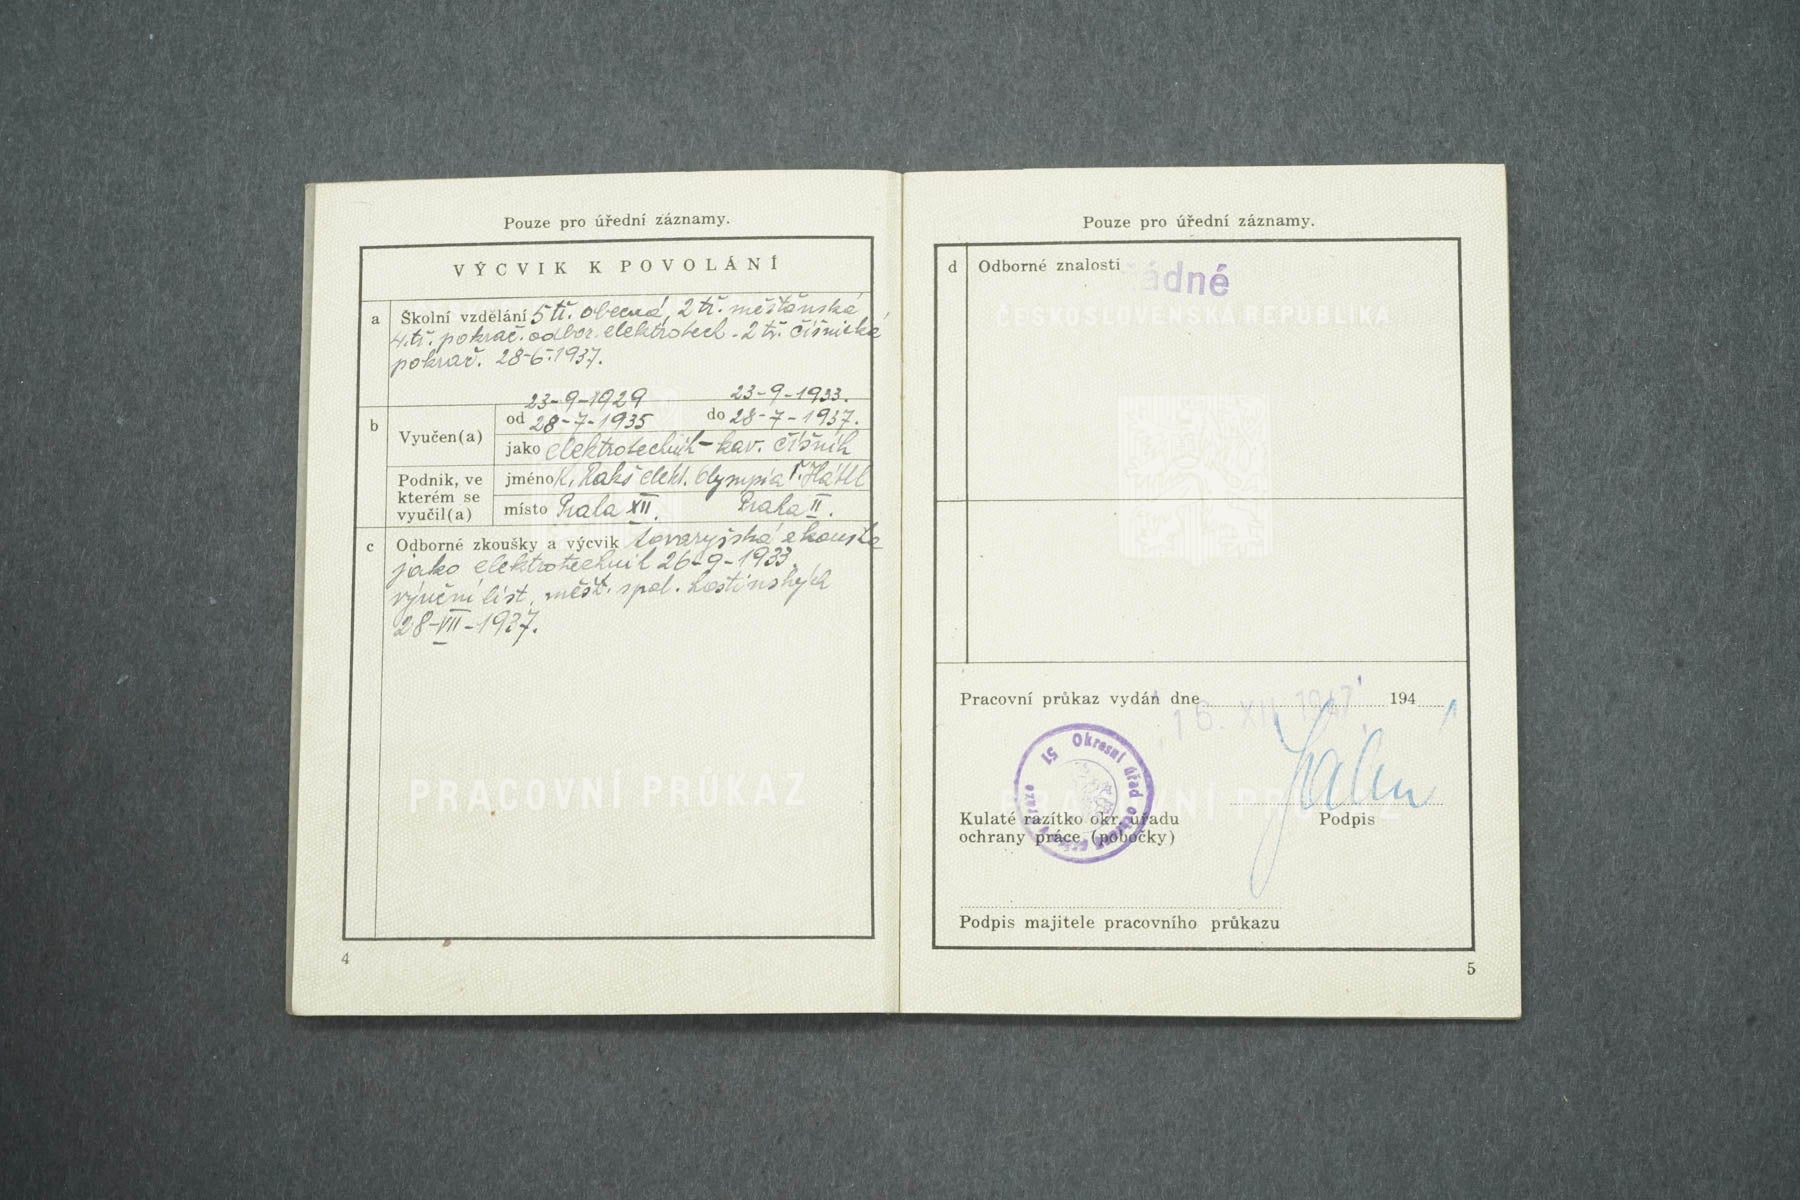 Pouze pro úřední záznamy.
VÝCVIK K POVOLÁNÍ
a Školní vzdělání 5 tř. obecná, 2 tř. měšťanská,
4. tř. pokrač. odbor. elektrotech. - 2 tř. číšnická
pokrač. 28-6.1937.
23-9-1929 23-9-1933.
b Vyučen(a) od 28-7-1935 do 28-7-1937.
jako elektrotechnik - kav. číšník
Podnik, ve kterém se vyučil(a)
jméno K. elekt. Olympia
místo Praha XII. Praha II.
c Odborné zkoušky a výcvik tovaryšská zkouška
jako elektrotechnik 26-9-1933.
výuční list, spol. hostinských
28-VII-1937.
PRACOVNÍ PRŮKAZ
4
Pouze pro úřední záznamy.
d Odborné znalosti žádné
ČESKOSLOVENSKÁ REPUBLIKA
Pracovní průkaz vydán dne 194
16. XII. 1947
Okresní úřad ochrany práce v Praze 51
PRACOVNÍ PRŮKAZ
Kulaté razítko okr. úřadu
ochrany práce (pobočky)
Podpis
Podpis majitele pracovního průkazu
5